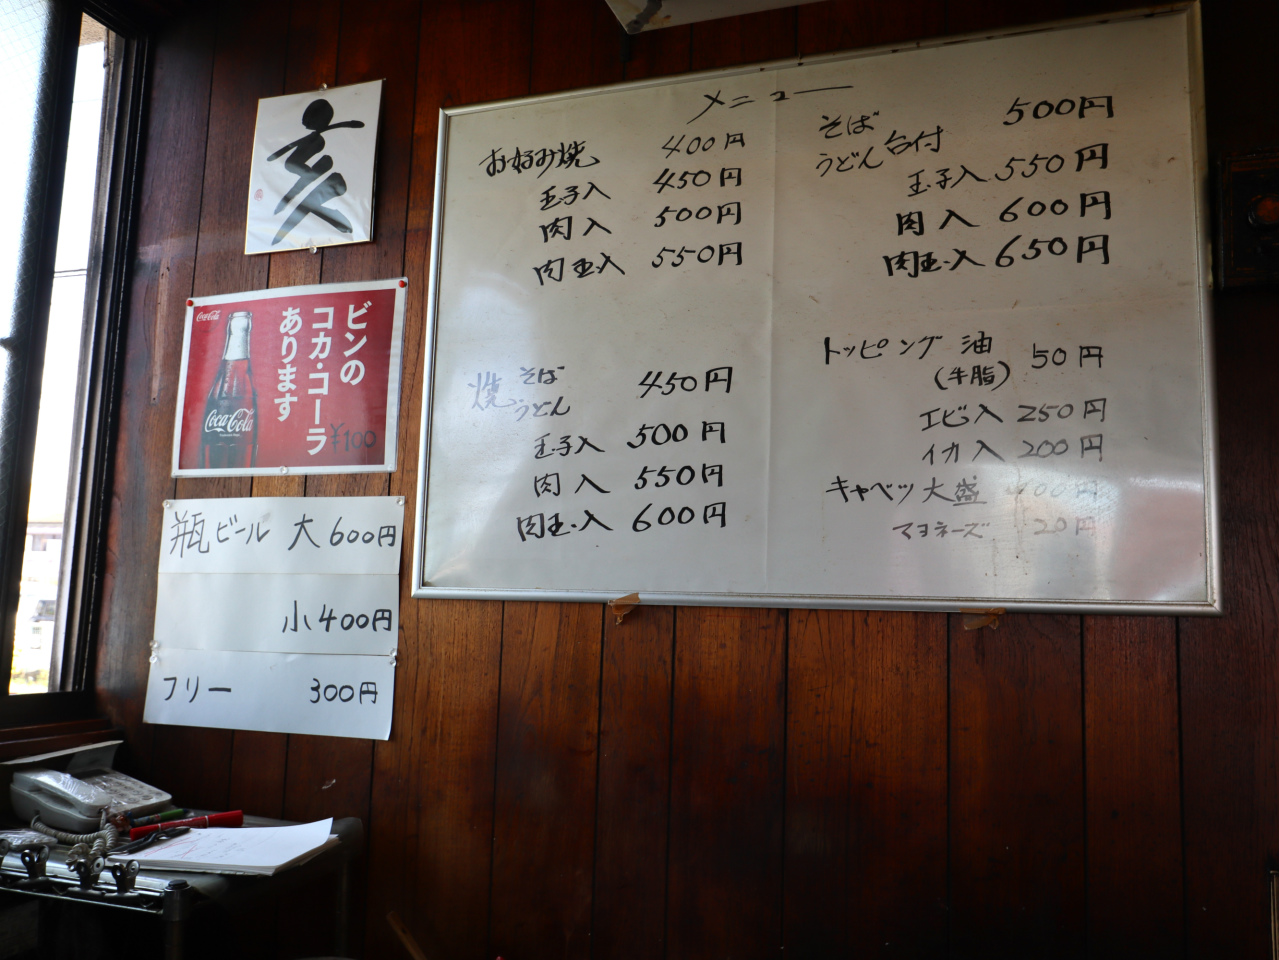 亥
Coca-Cola
ビンの
コカ・コーラ
あります
Coca-Cola
¥100
瓶ビール 大 600円
小 400円
フリー 300円
メニュー
お好み焼 400円
玉子入 450円
肉入 500円
肉玉入 550円
焼そば
うどん 450円
玉子入 500円
肉入 550円
肉玉入 600円
そば
うどん 台付 500円
玉子入 550円
肉入 600円
肉玉入 650円
トッピング 油
(牛脂) 50円
エビ入 250円
イカ入 200円
キャベツ大盛 100円
マヨネーズ 20円